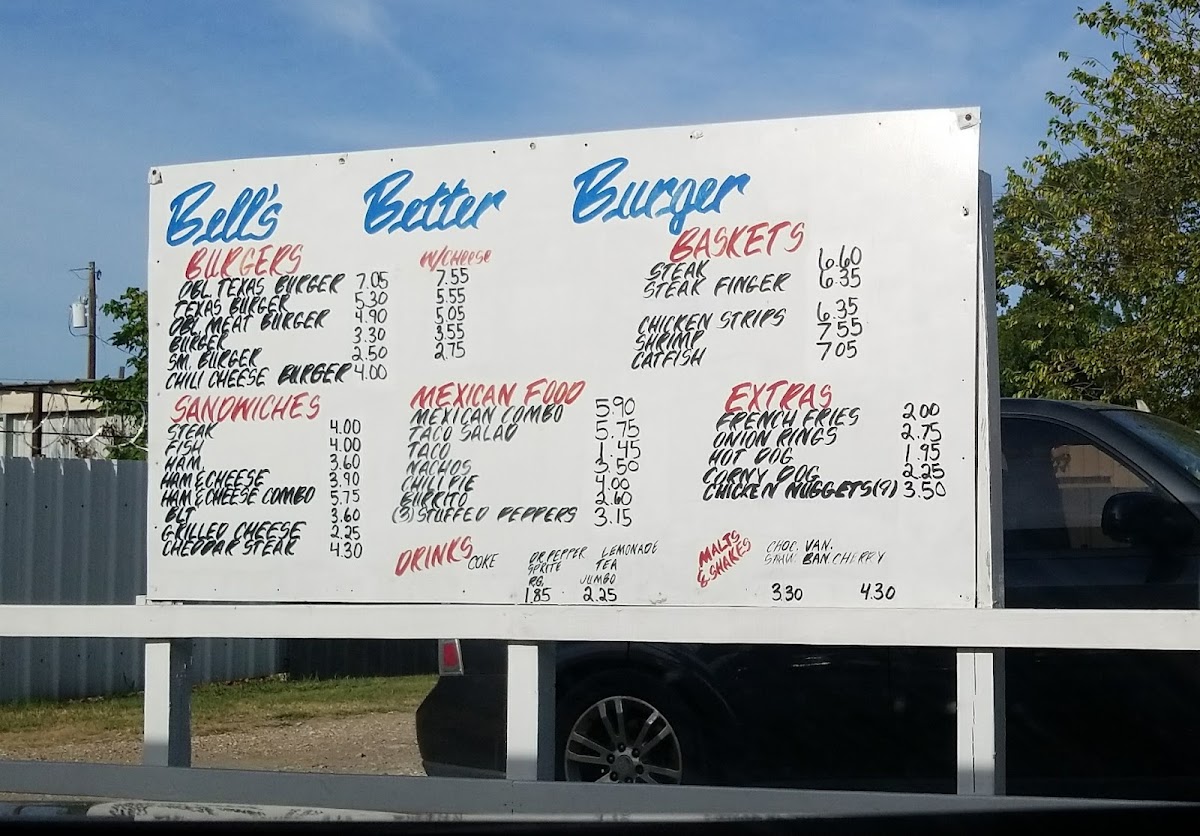 Bell's Better Burger
BURGERS W/CHEESE
DBL. TEXAS BURGER 7.05 7.55
TEXAS BURGER 5.30 5.55
DBL MEAT BURGER 4.90 5.05
BURGER 3.30 3.55
SM. BURGER 2.50 2.75
CHILI CHEESE BURGER 4.00
BASKETS
STEAK 6.60
STEAK FINGER 6.35
CHICKEN STRIPS 6.35
SHRIMP 7.55
CATFISH 7.05
SANDWICHES
STEAK 4.00
FISH 4.00
HAM 3.60
HAM & CHEESE 3.90
HAM & CHEESE COMBO 5.75
BLT 3.60
GRILLED CHEESE 2.25
CHEDDAR STEAK 4.30
MEXICAN FOOD
MEXICAN COMBO 5.90
TACO SALAD 5.75
TACO 1.45
NACHOS 3.50
CHILI PIE 4.00
BURRITO 2.60
(3) STUFFED PEPPERS 3.15
EXTRAS
FRENCH FRIES 2.00
ONION RINGS 2.75
HOT DOG 1.95
CORNY DOG 2.25
CHICKEN NUGGETS (9) 3.50
DRINKS COKE DR PEPPER LEMONADE
SPRITE TEA
RG. JUMBO
1.85 2.25
MALTS
& SHAKES
CHOC. VAN.
STRAW. BAN. CHERRY
3.30 4.30